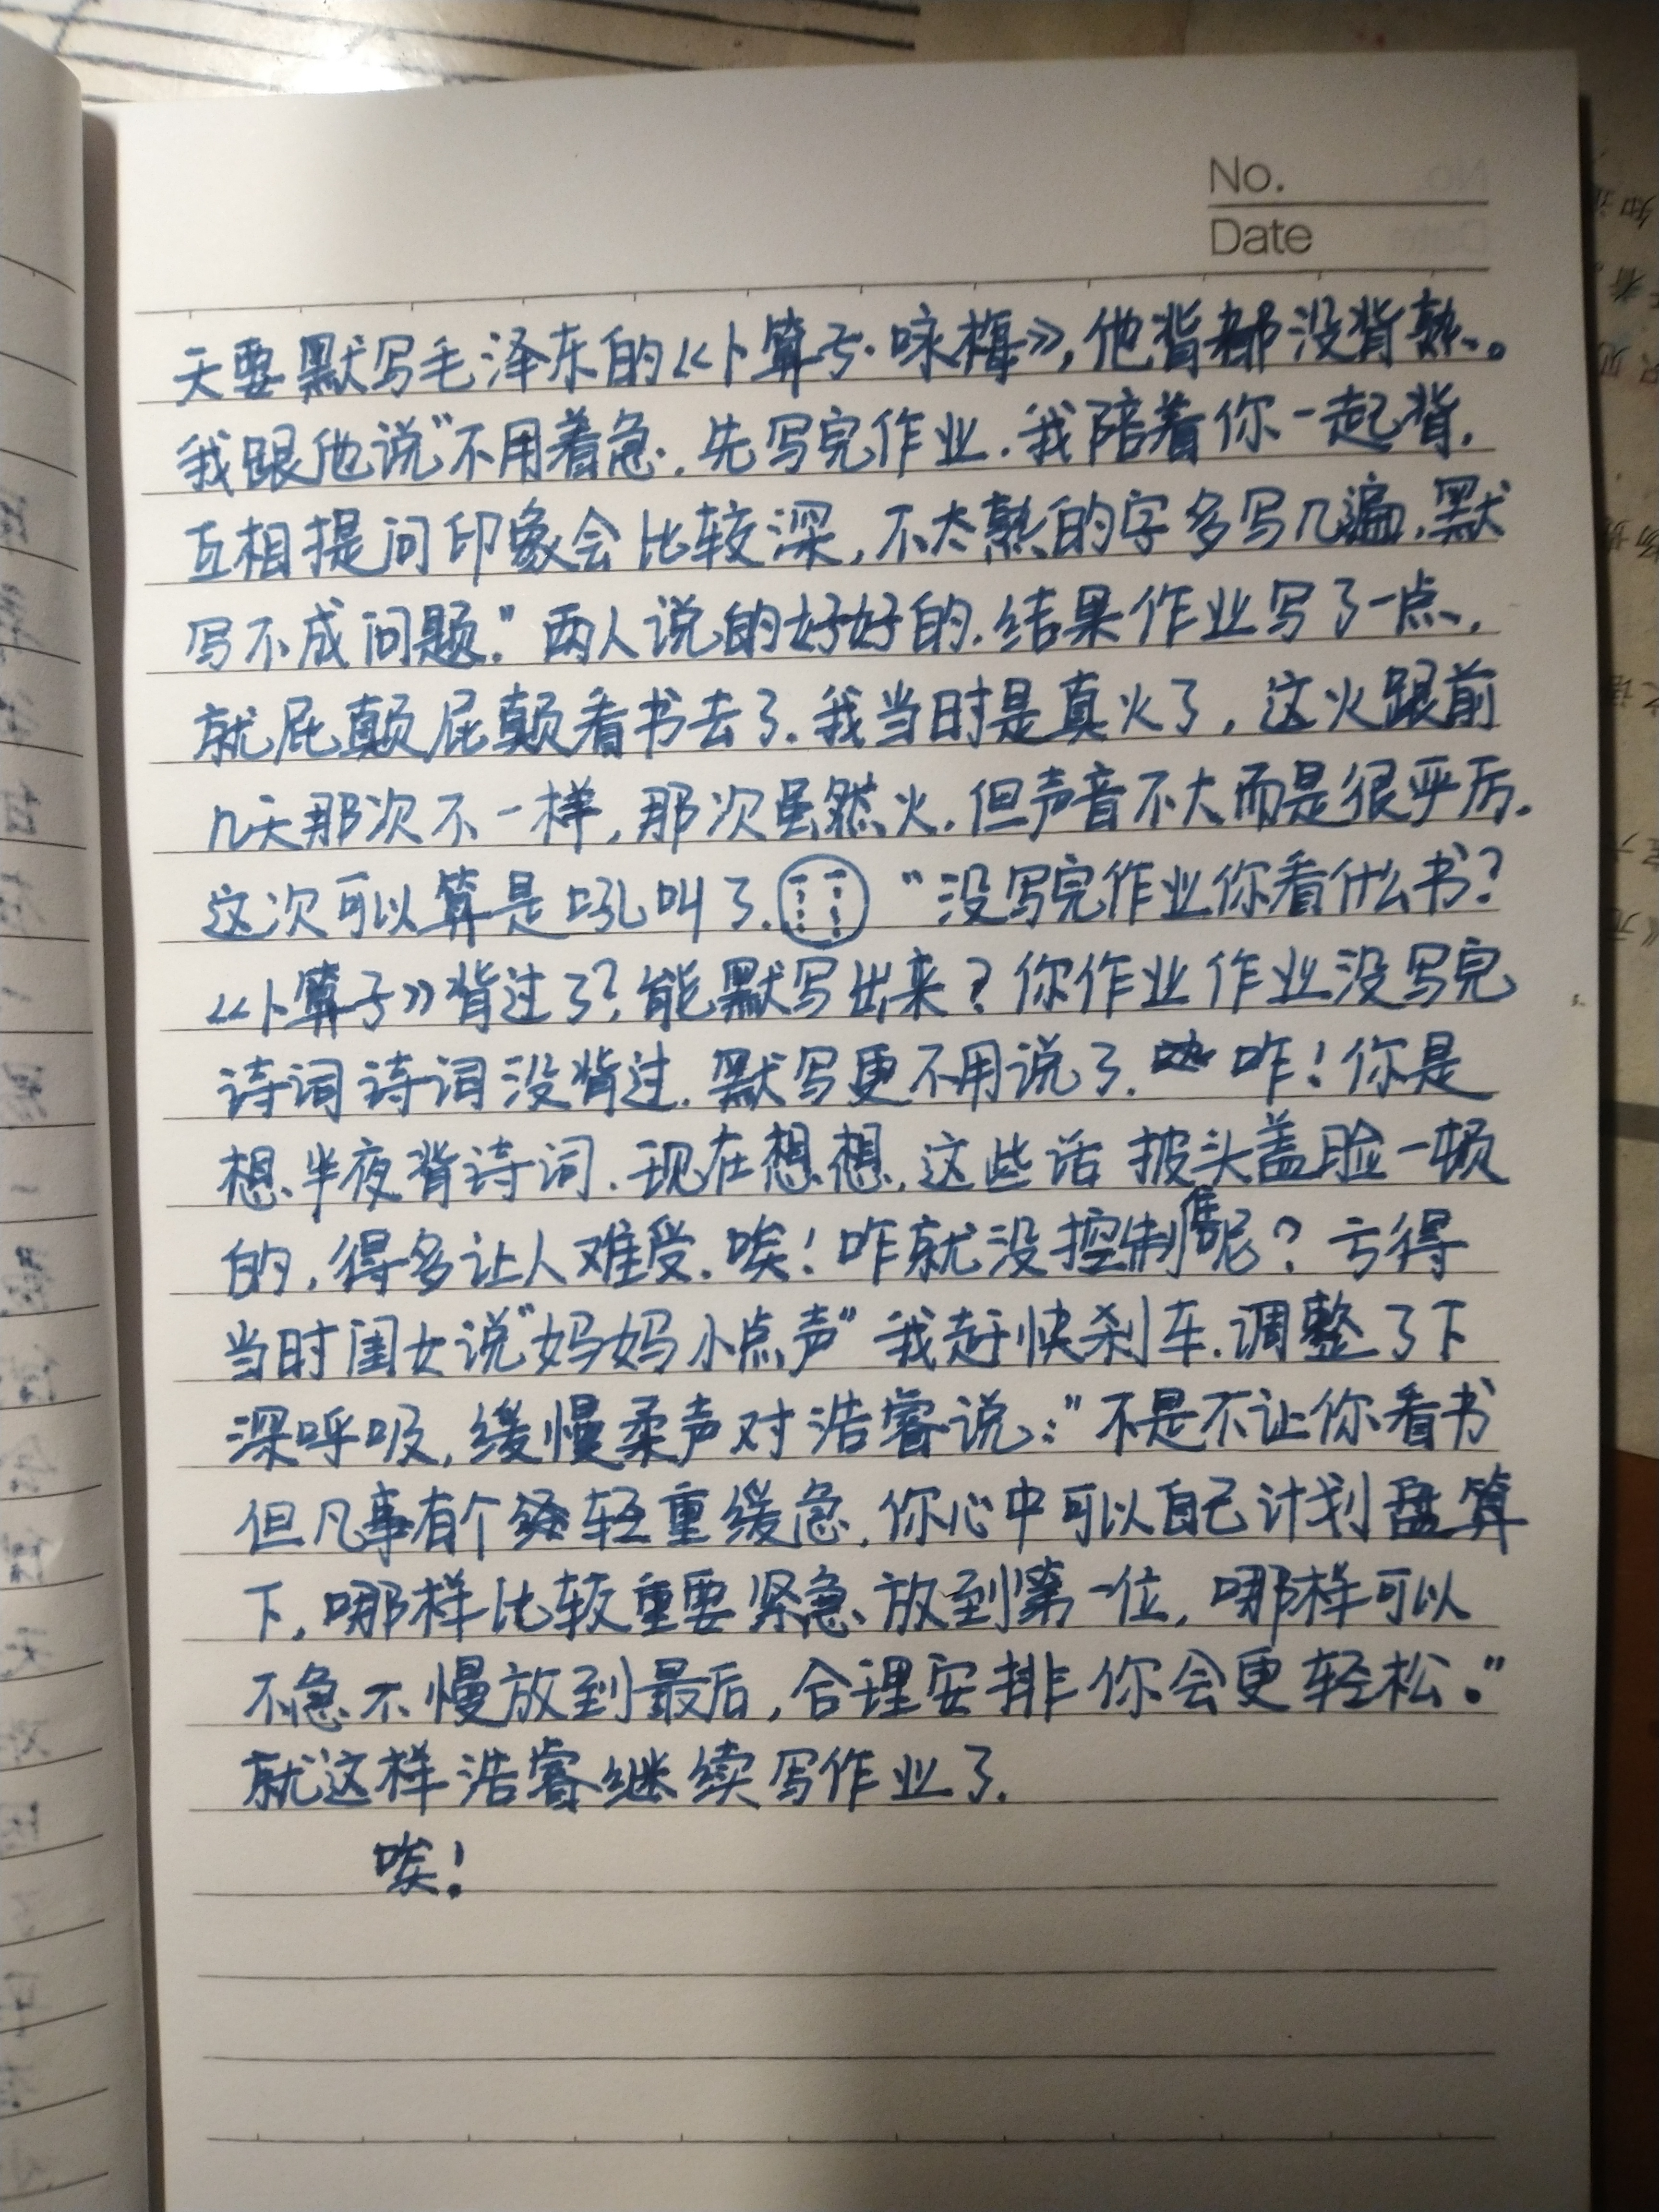 No.
Date
天要默写毛泽东的《卜算子·咏梅》,他背都没背熟。
我跟他说"不用着急.先写完作业.我陪着你一起背.
互相提问印象会比较深,不太熟的字多写几遍.默
写不成问题."两人说的好好的.结果作业写了一点,
就屁颠屁颠看书去了.我当时是真火了,这火跟前
几天那次不一样,那次虽然火.但声音不大而是很严厉.
这次可以算是吼叫了. "没写完作业你看什么书?
《卜算子》背过了?能默写出来?你作业作业没写完
诗词诗词没背过.默写更不用说了. 咋!你是
想半夜背诗词.现在想想,这些话披头盖脸一顿
的,得多让人难受.唉!咋就没控制住呢?亏得
当时闺女说"妈妈小点声"我赶快刹车.调整了下
深呼吸,缓慢柔声对浩睿说:"不是不让你看书
但凡事有个轻重缓急.你心中可以自己计划盘算
下,哪样比较重要紧急放到第一位,哪样可以
不急不慢放到最后,合理安排你会更轻松."
就这样浩睿继续写作业了.
唉!